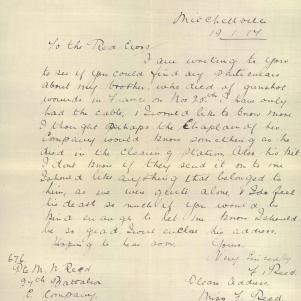 Mitchellville
19.1.17
To the Red Cross
I am writing to you
to see if you could find any particulars
about my brother, who died of gunshot
wounds in France on Nov 20th. I have only
had the cable, & I would like to know more
I thought perhaps the Chaplain of his
Company would know something as he
died in the Clearing Station also his kit
I dont know if they send it on to me
I should like anything that belonged to
him, as we were quite alone, & I do feel
his death so much if you would be
kind enough to let me know I should
be so glad, I will enclose his address.
Hoping to hear soon
Yours
Very Sincerely
Reed
676
Pte M. N. Reed
Battalion
E Company
Address
Miss Reed